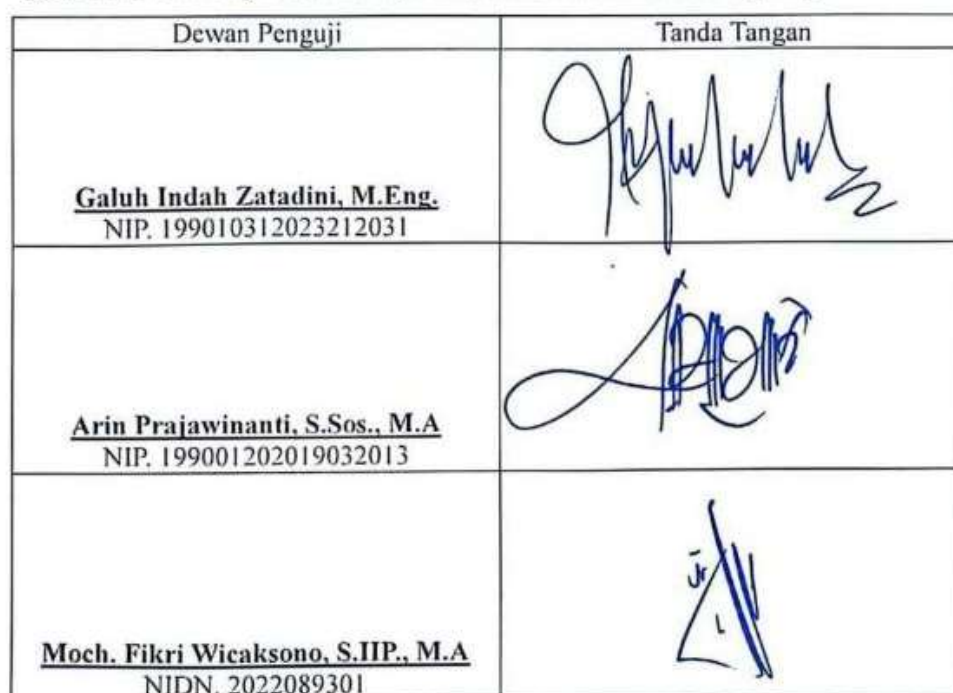 Dewan Penguji
Tanda Tangan
Galuh Indah Zatadini, M.Eng.
NIP. 199010312023212031
Arin Prajawinanti, S.Sos., M.A
NIP. 199001202019032013
Moch. Fikri Wicaksono, S.IIP., M.A
NIDN. 2022089301